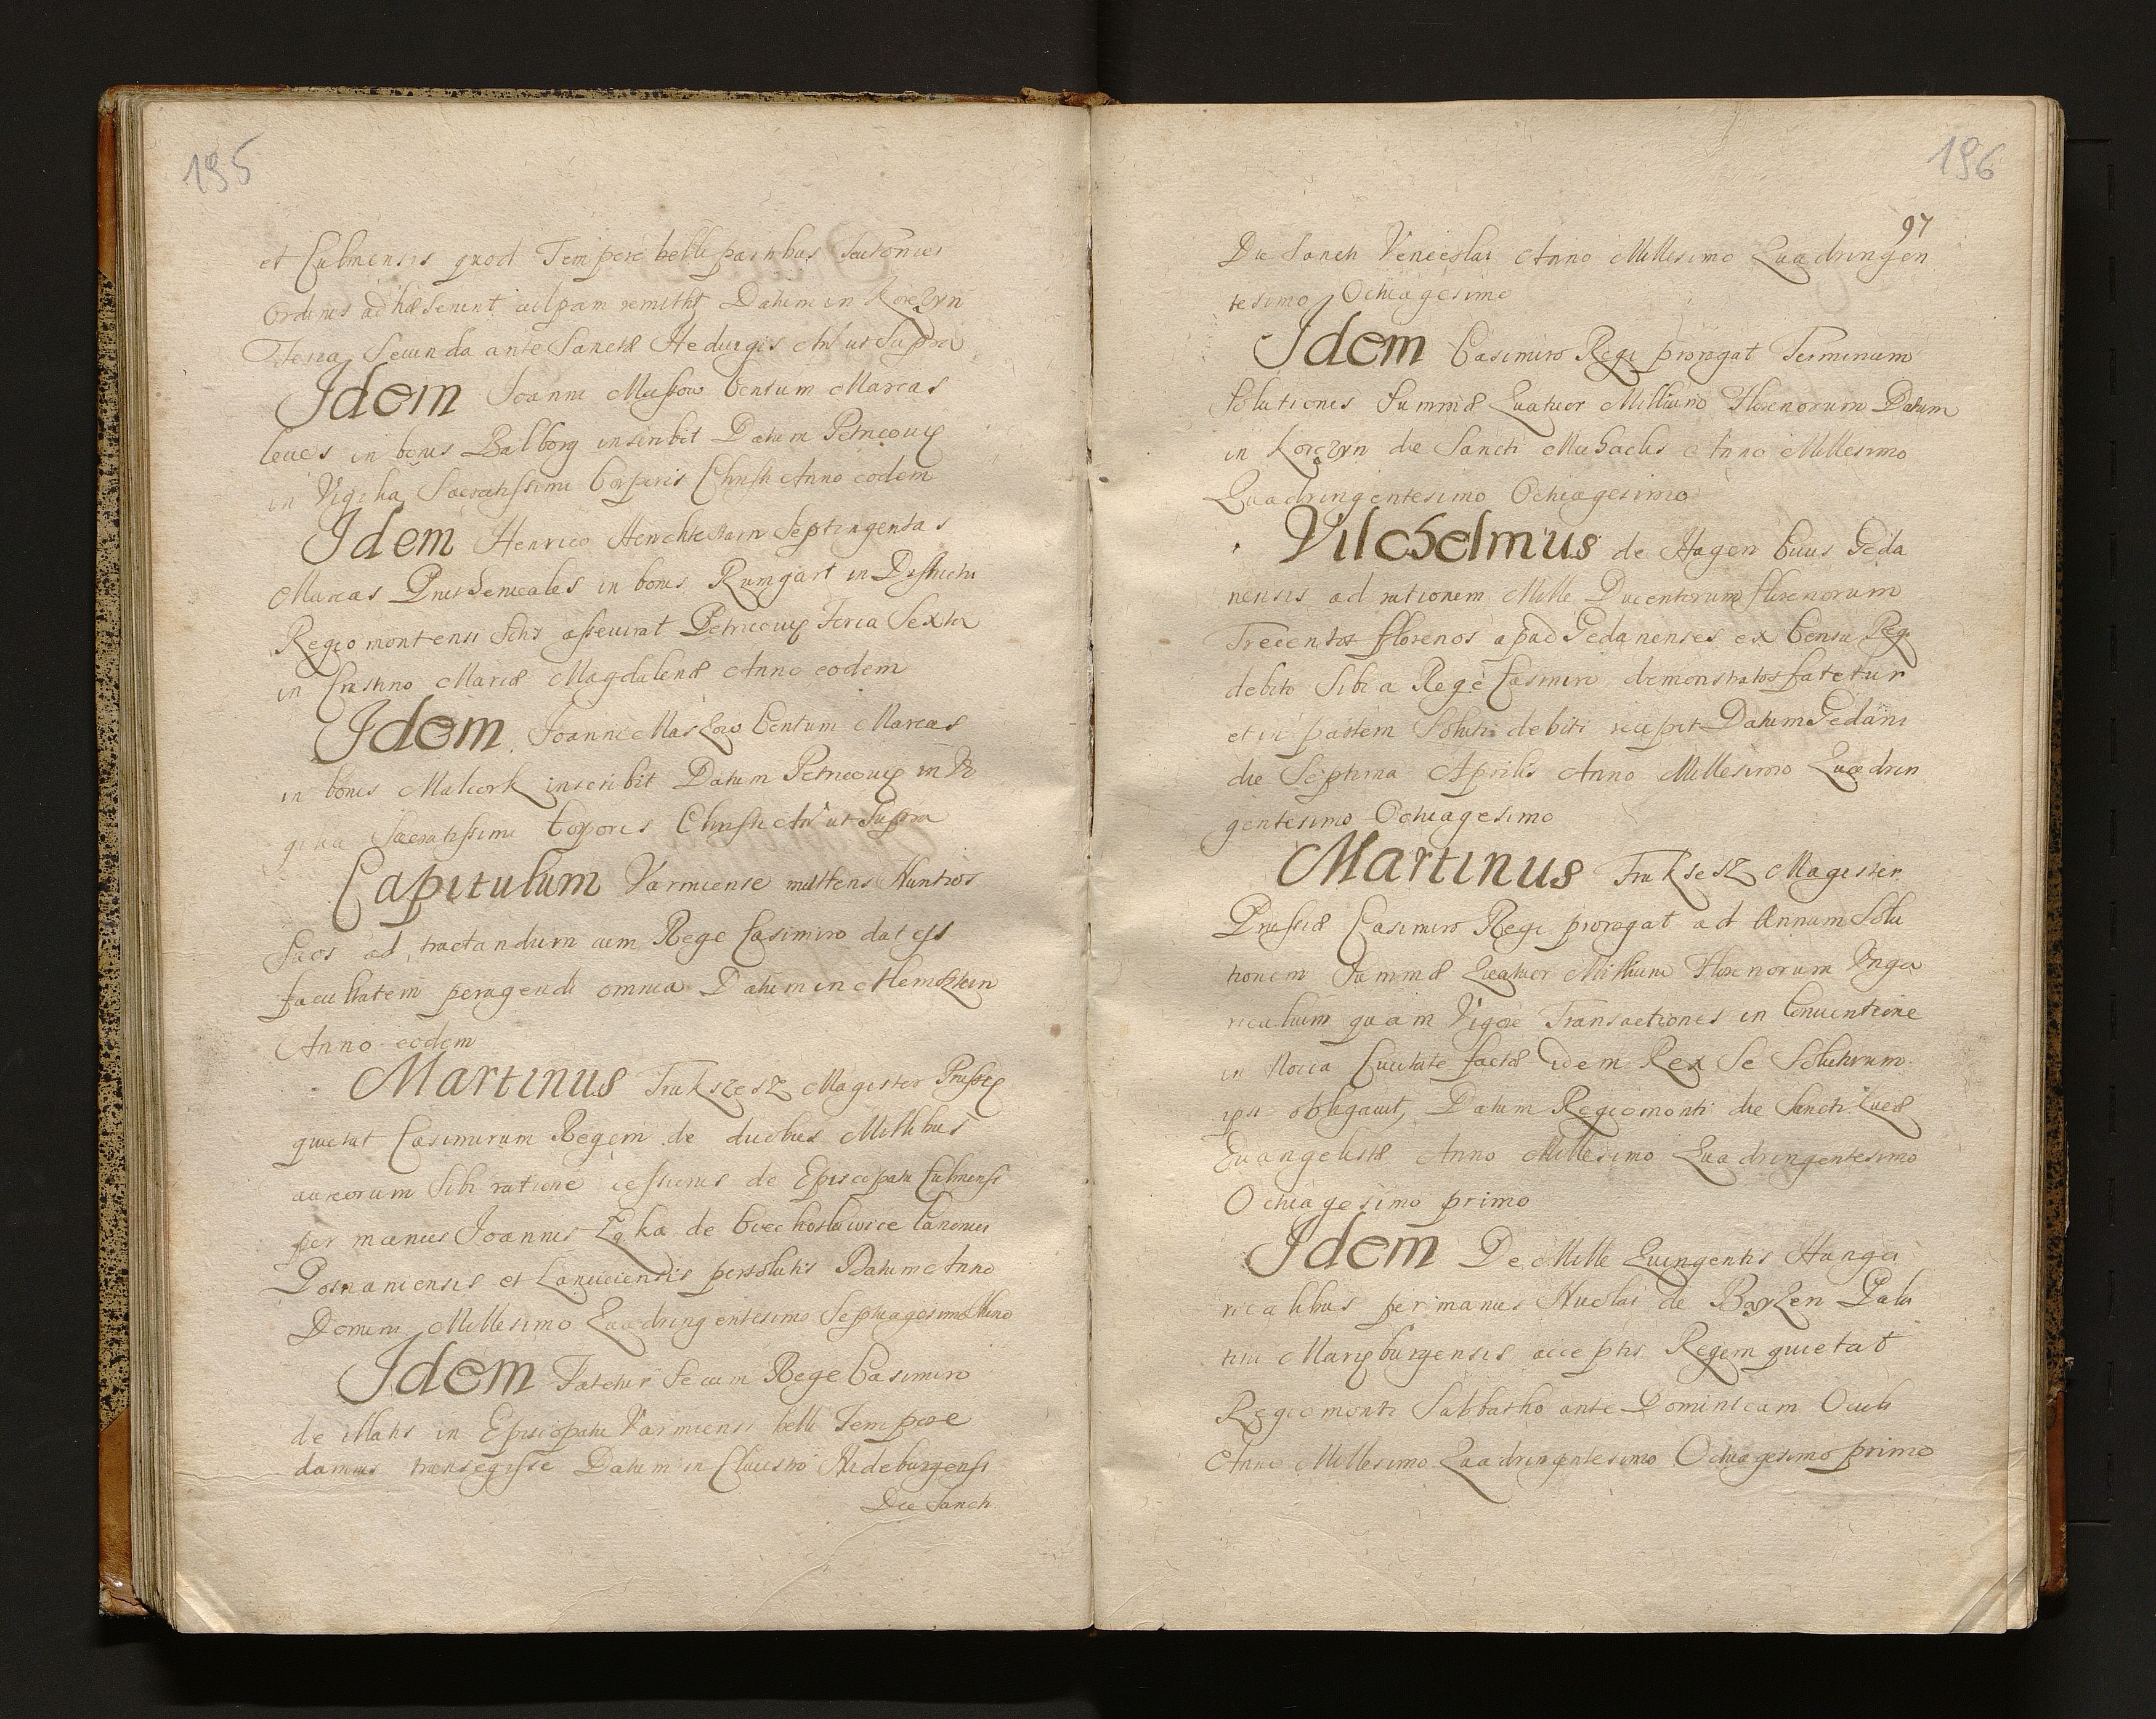 195
et Culmensis quod Tempore belli partibus Teutonici
Ordinis adhæserunt culpam remittit Datum in Korczyn
Feria Secunda ante Sanctæ Heduigis An ut Supra
Idem Joanni Massow Centum Marcas
leues in bonis Balborg inscribit Datum Petricouiæ
in Vigilia Sacratissimi Corporis Christi Anno eodem
Idem Henrico Septingentas
Marcas Pruthenicales in bonis Rumgart in Districtu
Regiomontensi Sitis assecurat Petricouiæ Feria Sexta
in Crastino Mariæ Magdalenæ Anno eodem
Idem Joanni Maskow Centum Marcas
in bonis Malcork inscribit Datum Petricouiæ in Vi
gilia Sacratissimi Corporis Christi An ut Supra
Capitulum Varmiense mittens Nuntios
Suos ad tractandum cum Rege Casimiro dat eis
facultatem peragendi omnia Datum in Alemsztein
Anno eodem
Martinus Trukszesz Magister Prussiæ
quietat Casimirum Regem de duobus Millibus
aureorum Sibi ratione cessionis de Episcopatu Culmensi
per manus Joannis de Canonici
Posnaniensis et Lanciciensis persolutis Datum Anno
Domini Millesimo Quadringentesimo Septuagesimo Nono
Idem Fatetur Se cum Rege Casimiro
de illatis in Episcopatu Varmiensi belli Tempore
damnis transegisse Datum in Claustro Hideburgensi
Die Sancti
196
97
Die Sancti Venceslai Anno Millesimo Quadringen
tesimo Octuagesimo
Idem Casimiro Regi prorogat Terminum
Solutionis Summæ Quatuor Millium Florenorum Datum
in Korczyn die Sancti Michaelis Anno Millesimo
Quadringentesimo Octuagesimo
Vilchelmus de Hagen Ciuis Geda
nensis ad rationem Mille Ducentorum florenorum
Trecentos florenos apud Gedanenses ex Censu Regi
debito Sibi a Rege Casimiro demonstratos fatetur
et in partem Soluti debiti recipit Datum Gedani
die Septima Aprilis Anno Millesimo Quadrin
gentesimo Octuagesimo
Martinus Truksesz Magister
Prussiæ Casimiro Regi prorogat ad Annum Solu
tionem Summæ Quatuor Millium Florenorum Unga
ricalium quam Vigore Transactionis in Conuentione
in Noua Ciuitate factæ idem Rex Se Soluturum
ipsi obligauit, Datum Regiomonti die Sancti Lucæ
Euangelistæ Anno Millesimo Quadringentesimo
Octuagesimo primo
Idem De Mille Quingentis Hunga
ricalibus per manus Nicolai de Bayzen Pala
tini Mariæburgensis acceptis Regem quietat
Regiomonti Sabbatho ante Dominicam Oculi
Anno Millesimo Quadringntesimo Octuagesimo primo